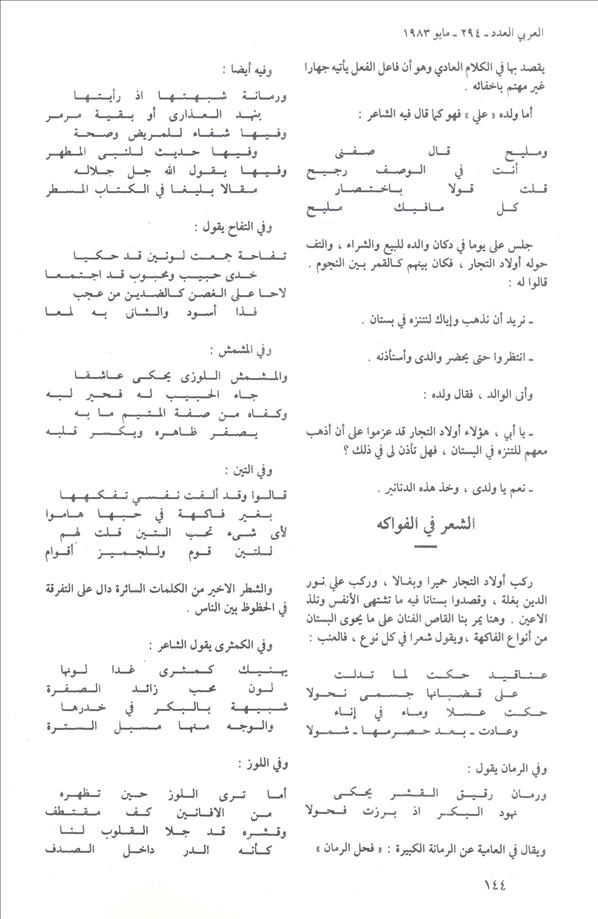 العربي العدد ـ ٢٩٤ ـ مايو ١٩٨٣
يقصد بها في الكلام العادي وهو أن فاعل الفعل يأتيه جهارا
غير مهتم باخفائه .
أما ولده « علي » فهو كما قال فيه الشاعر :
ومليح قال صفنى
أنت في الوصف رجيح
قلت قولا باختصار
كل مافيك مليح
جلس على يوما في دكان والده للبيع والشراء ، والتف
حوله أولاد التجار ، فكان بينهم كالقمر بين النجوم .
قالوا له :
ـ نريد أن نذهب وإياك لنتنزه في بستان .
ـ انتظروا حتى يحضر والدى وأستأذنه .
وأتى الوالد ، فقال ولده :
ـ يا أبي ، هؤلاء أولاد التجار قد عزموا على أن أذهب
معهم للتنزه في البستان ، فهل تأذن لى في ذلك ؟
ـ نعم يا ولدى ، وخذ هذه الدنانير .
الشعر في الفواكه
ركب أولاد التجار حميرا وبغالا ، وركب علي نور
الدين بغلة ، وقصدوا بستانا فيه ما تشتهى الأنفس وتلذ
الاعين . وهنا يمر بنا القاص الفنان على ما يحوى البستان
من أنواع الفاكهة ، ويقول شعرا في كل نوع ، فالعنب :
عناقيد حكت لما تدلت
على قضبانها جسمى نحولا
حكت عسلا وماء في إناء
وعادت ـ بعد حصرمها ـ شمولا
وفي الرمان يقول :
ورمان رقيق القشر يحكى
نهود البكر اذ برزت فحولا
ويقال في العامية عن الرمانة الكبيرة : « فحل الرمان »
وفيه أيضا :
ورمانة شبهتها اذ رأيتها
بنهد العذارى أو بقية مرمر
وفيها شفاء للمريض وصحة
وفيها حديث للنبى المطهر
وفيها يقول الله جل جلاله
مقالا بليغا في الكتاب المسطر
وفي التفاح يقول :
تفاحة جمعت لونين قد حكيا
خدى حبيب ومحبوب قد اجتمعا
لاحا على الغصن كالضدين من عجب
فذا أسود والثانى به لمعا
وفي المشمش :
والمشمش اللوزى يحكى عاشقا
جاء الحبيب له فحير لبه
وكفاه من صفة المتيم ما به
يصفر ظاهره ويكسر قلبه
وفي التين :
قالوا وقد ألفت نفسي تفكهها
بغير فاكهة في حبها هاموا
لأى شيء تحب التين قلت لهم
للتين قوم وللجميز أقوام
والشطر الاخير من الكلمات السائرة دال على التفرقة
في الحظوظ بين الناس .
وفي الكمثرى يقول الشاعر :
يهنيك كمثرى غدا لونها
لون محب زائد الصفرة
شبيهة بالبكر في خدرها
والوجه منها مسبل السترة
وفي اللوز :
أما ترى اللوز حين تظهره
من الافانين كف مقتطف
وقشره قد جلا القلوب لنا
كأنه الدر داخل الصدف
١٤٤